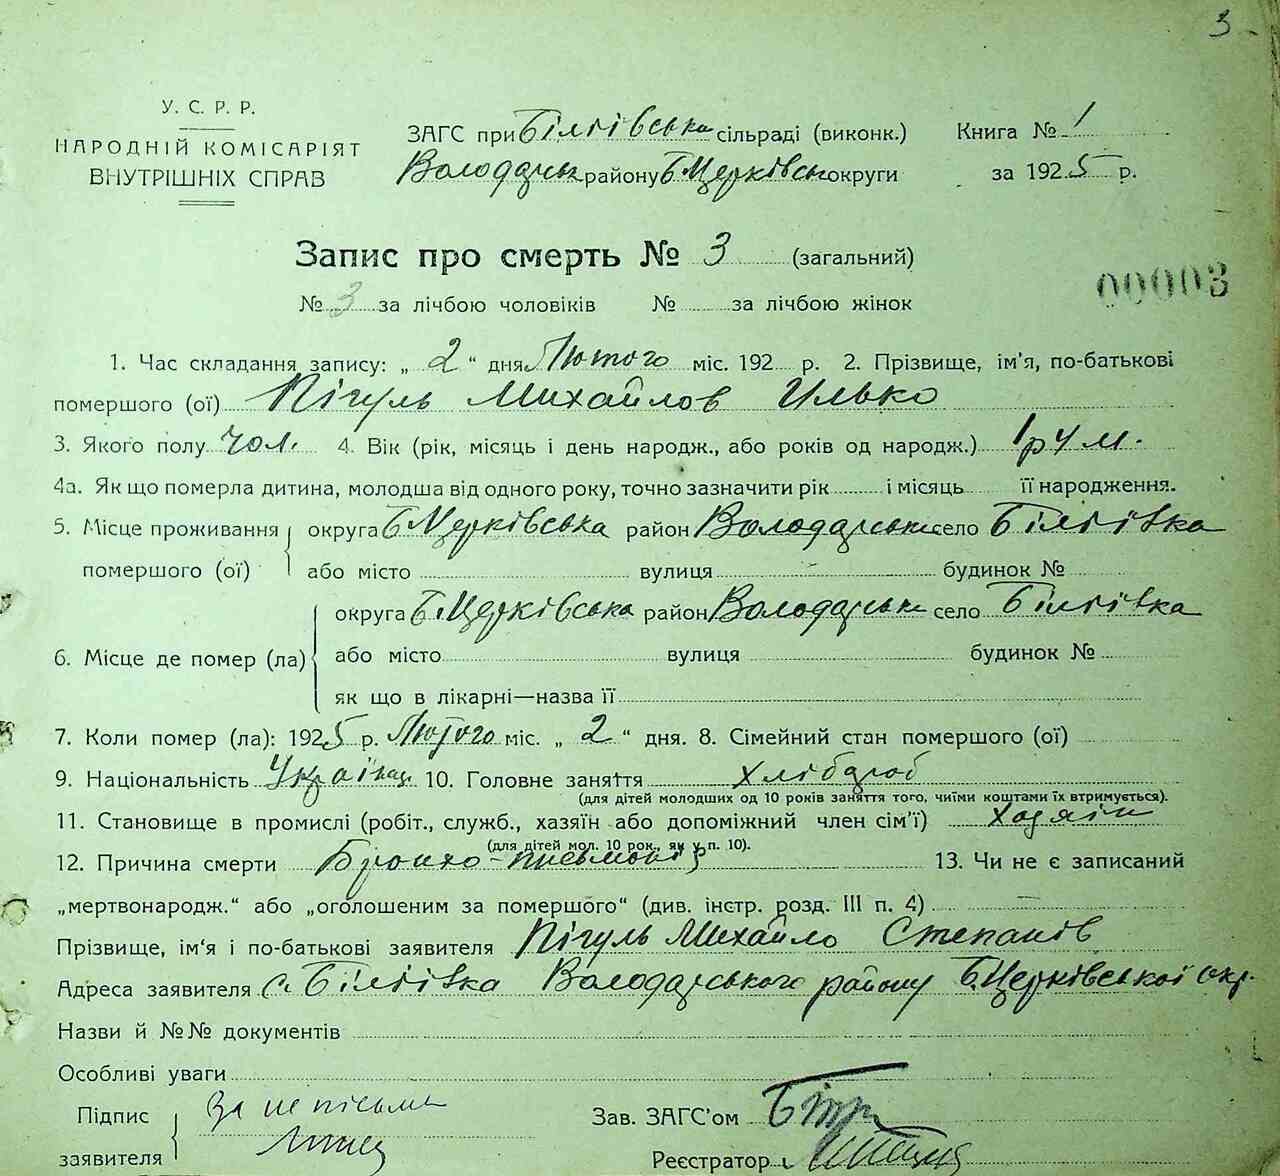 3.
У. С. Р. Р.
НАРОДНІЙ КОМІСАРІЯТ
ВНУТРІШНІХ СПРАВ
ЗАГС при Білиївська сільраді (виконк.)
Володарськ району Б Церківськ округи
Книга № 1
за 1925 р.
Запис про смерть № 3 (загальний)
№ 3 за лічбою чоловіків № за лічбою жінок
00003
1. Час складання запису: „ 2 “ дня Лютого міс. 192 р. 2. Прізвище, ім'я, по-батькові
помершого (ої) Пігуль Михайлов Илько
3. Якого полу чол. 4. Вік (рік, місяць і день народж., або років од народж.) 1 р 4 м.
4а. Як що померла дитина, молодша від одного року, точно зазначити рік і місяць її народження.
5. Місце проживання помершого (ої) округа Б Церківська район Володарськ село Біліївка
або місто вулиця будинок №
6. Місце де помер (ла) округа Б. Церківська район Володарськ село Біліївка
або місто вулиця будинок №
як що в лікарні—назва її
7. Коли помер (ла): 1925 р. Лютого міс. „ 2 “ дня. 8. Сімейний стан помершого (ої)
9. Національність Україн 10. Головне заняття хлібороб
(для дітей молодших од 10 років заняття того, чиїми коштами їх втримується).
11. Становище в промислі (робіт., служб., хазяїн або допоміжний член сім'ї) Хазяїн
(для дітей мол. 10 рок., як у п. 10).
12. Причина смерти Бронхо-пневмонія 13. Чи не є записаний
„мертвонародж.“ або „оголошеним за помершого“ (див. інстр. розд. III п. 4) —
Прізвище, ім'я і по-батькові заявителя Пігуль Михайло Степанів
Адреса заявителя с. Біліївка Володарського району Б. Церківської окр.
Назви й №№ документів
Особливі уваги
Підпис заявителя За не письме
Зав. ЗАГС'ом
Реєстратор